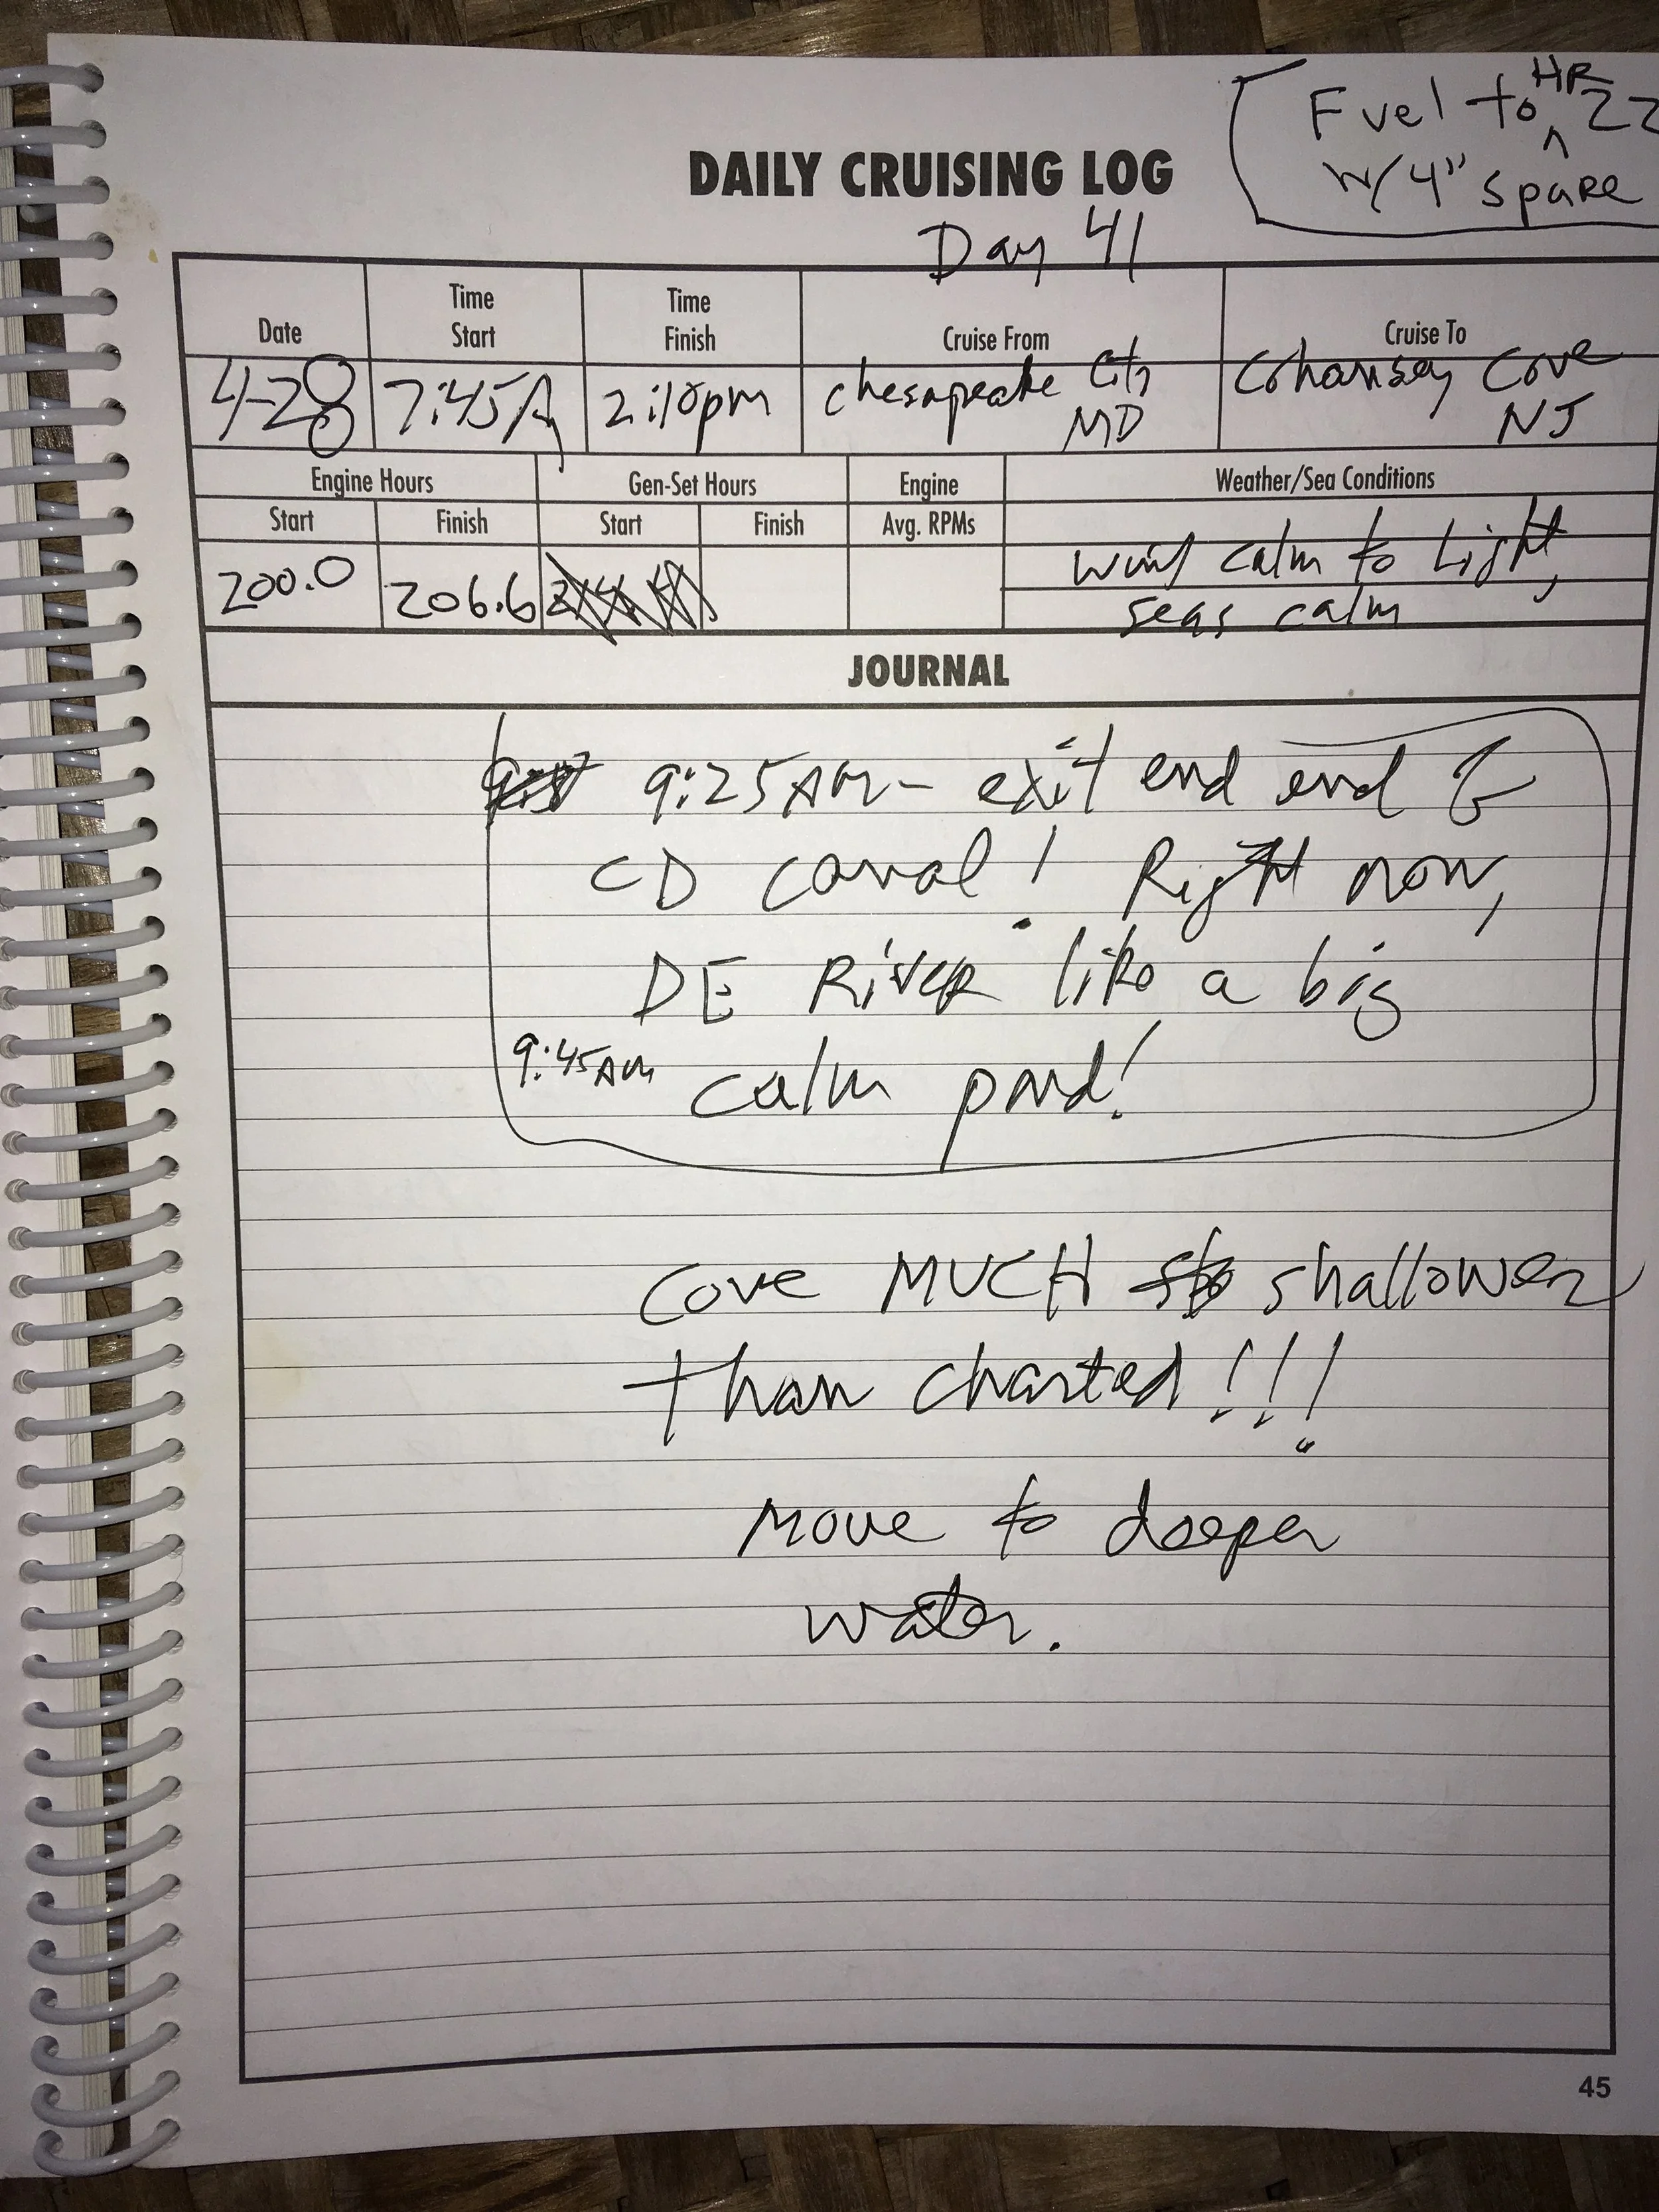 Fuel to HR 22
w/ 4" spare
DAILY CRUISING LOG
Day 41
Date
Time Start
Time Finish
Cruise From
Cruise To
4-28
7:45A
2:10pm
Chesapeake City MD
Cohansey Cove NJ
Engine Hours
Gen-Set Hours
Engine
Weather/Sea Conditions
Start
Finish
Start
Finish
Avg. RPMs
200.0
206.6
wind calm to light,
seas calm
JOURNAL
9:25AM - exit end end
CD canal! Right now,
DE River like a big
9:45AM calm pond!
Cove MUCH shallower
than charted!!!
Move to deeper
water.
45